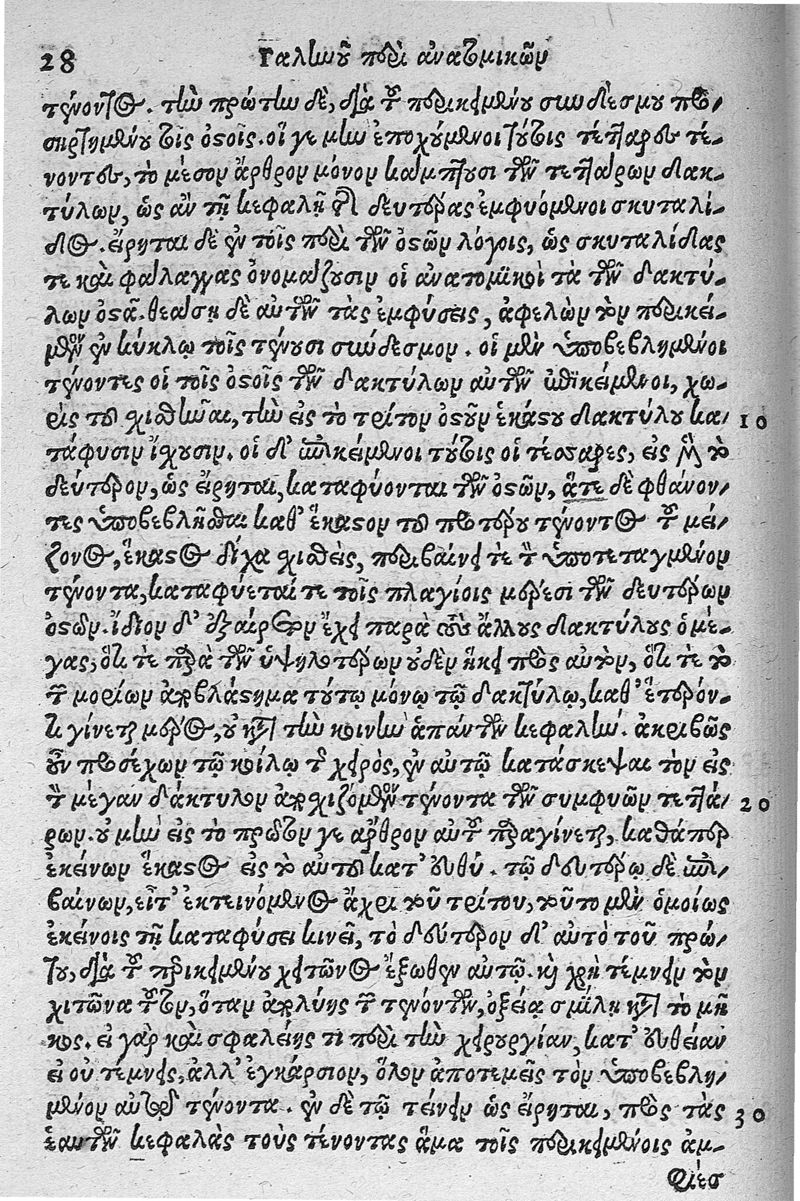 28 Γαλίωοῦ περὶ ἀνατομικῶν
τείνοντος. τὴν πρώτην δὲ, διὰ τοῦ περικειμένου συνδέσμου προ-
σηρτημένου τοῖς ὀστοῖς. οἵ γε μὴν ἐποχούμενοι τούτοις τέτταρες τέ-
νοντες, τὸ μέσον ἄρθρον μόνον κάμπτουσι τῶν τεττάρων δακ-
τύλων, ὡς ἂν τῇ κεφαλῇ τῆς δευτέρας ἐμφυόμενοι σκυταλί-
δος. εἴρηται δὲ ἐν τοῖς περὶ τῶν ὀστῶν λόγοις, ὡς σκυταλίδας
τε καὶ φάλαγγας ὀνομάζουσιν οἱ ἀνατομϊκοὶ τὰ τῶν δακτύ-
λων ὀστᾶ. θεάσῃ δὲ αὐτῶν τὰς ἐμφύσεις, ἀφελὼν τὸν περικεί-
μενον ἐν κύκλῳ τοῖς τένουσι σύνδεσμον. οἱ μὲν ὑποβεβλημένοι
τένοντες οἱ τοῖς ὀστοῖς τῶν δακτύλων αὐτῶν ἐπικείμενοι, χω-
ρὶς τοῦ σχισθῆναι, τὴν εἰς τὸ τρίτον ὀστοῦν ἑκάστου δακτύλου κα- 10
τάφυσιν ἴσχουσιν. οἱ δ' ἐπικείμενοι τούτοις οἱ τέσσαρες, εἰς μὲν τὸ
δεύτερον, ὡς εἴρηται, καταφύονται τῶν ὀστῶν, ἅτε δὲ φθάνον-
τες ὑποβεβλῆσθαι καθ' ἕκαστον τοῦ προτέρου τένοντος τοῦ μεί-
ζονος, ἕκαστος δίχα σχισθεὶς, περιβαίνει τε τὸν ὑποτεταγμένον
τένοντα, καταφύεταί τε τοῖς πλαγίοις μέρεσι τῶν δευτέρων
ὀστῶν. ἴδιον δ' ἐξαίρετον ἔχει παρὰ τοὺς ἄλλους δακτύλους ὁ μέ-
γας, ὅτι τε παρὰ τῶν ὑψηλοτέρων οὐδὲν ἥκει πρὸς αὐτὸν, ὅτι τε τὸ
τῶν μορίων ἀποβλάστημα τούτῳ μόνῳ τῷ δακτύλῳ, καθ' ἕτερόν-
τι γίνεται μέρος, οὐ κατὰ τὴν κοινὴν ἁπάντων κεφαλήν. ἀκριβῶς
οὖν προσέχων τῷ κοίλῳ τῆς χειρὸς, ἐν αὐτῷ κατάσκεψαι τὸν εἰς
τὸν μέγαν δάκτυλον ἀποσχιζόμενον τένοντα τῶν συμφυῶν τεττά- 20
ρων. οὐ μὴν εἰς τὸ πρῶτόν γε ἄρθρον αὐτοῦ παραγίνεται, καθάπερ
ἐκείνων ἕκαστος εἰς τὸ αὐτοῦ κατ' εὐθύ. τῷ δευτέρῳ δὲ ἐπι-
βαίνων, εἶτ' ἐκτεινόμενος ἄχρι τοῦ τρίτου, τοῦτο μὲν ὁμοίως
ἐκείνοις τῇ καταφύσει κινεῖ, τὸ δεύτερον δι' αὐτὸ τοῦ πρώ-
του, διὰ τοῦ περικειμένου χιτῶνος ἔξωθεν αὐτῷ. καὶ χρὴ τέμνειν τὸν
χιτῶνα τοῦτον, ὅταν ἀπολύῃς τὸν τένοντα, ὀξείᾳ σμίλῃ κατὰ τὸ μῆ-
κος. εἰ γὰρ καὶ σφαλείης τι περὶ τὴν χειρουργίαν, κατ' εὐθείαν
εἰ οὐ τεμνεῖς, ἀλλ' ἐγκάρσιον, ὅλον ἀποτεμεῖς τὸν ὑποβεβλη-
μένον αὐτῷ τένοντα. ἐν δὲ τῷ τείνειν ὡς εἴρηται, πρὸς τὰς 30
ἑαυτῶν κεφαλὰς τοὺς τένοντας ἅμα τοῖς περικειμένοις ἀμ-
φιέσ